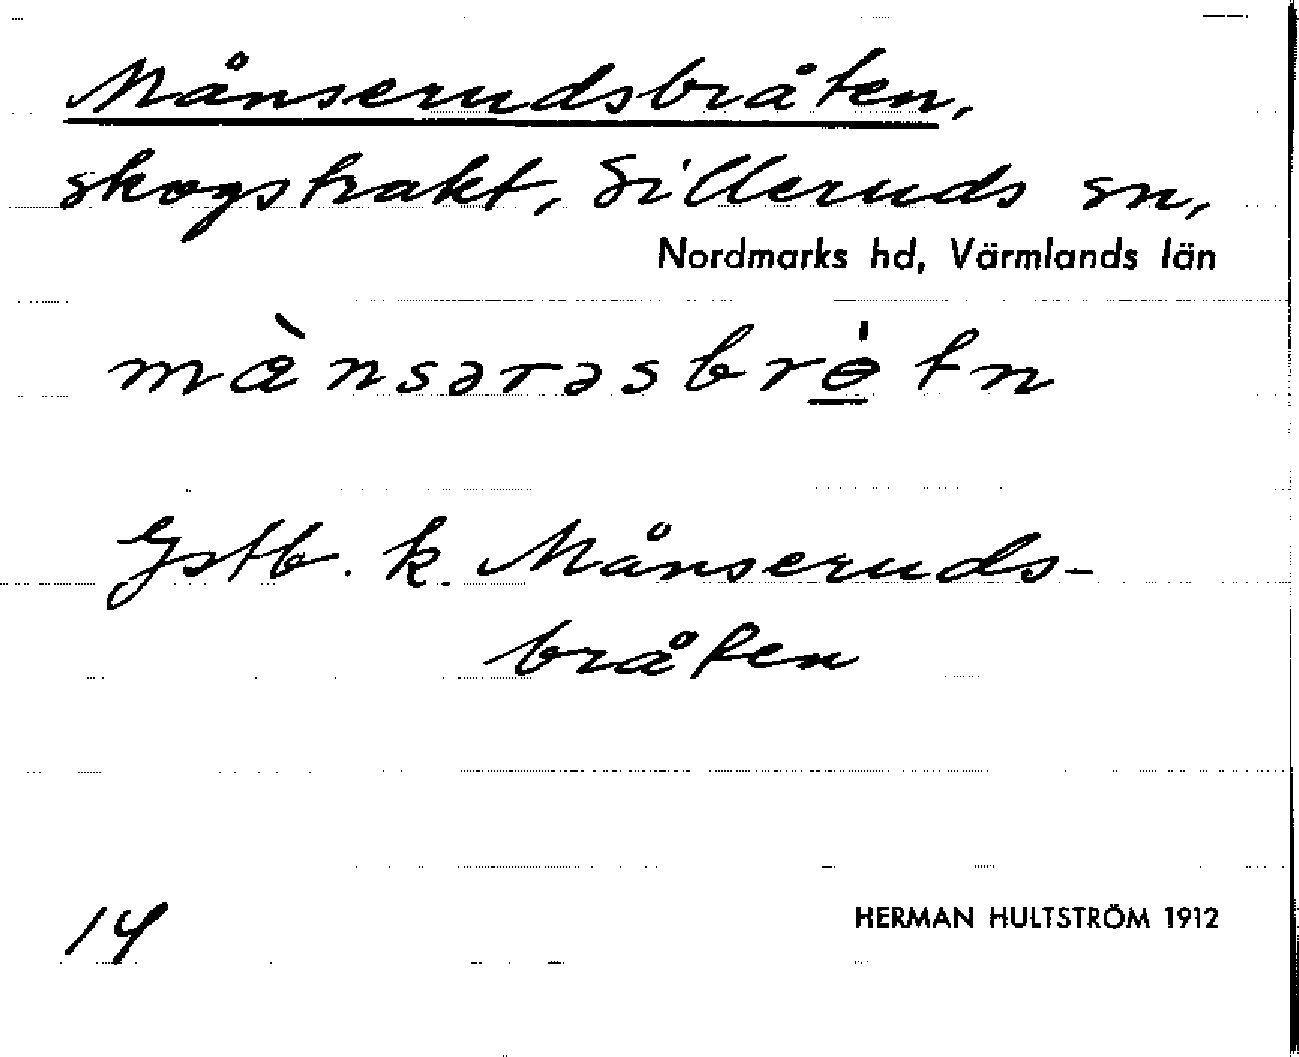 Månserudsbråten,
skogstrakt, Silleruds sn,
Nordmarks hd, Värmlands län
mὰnsərəsbrɵ̲́tn
Gstb. k. Månseruds-
bråten
14
HERMAN HULTSTRÖM 1912